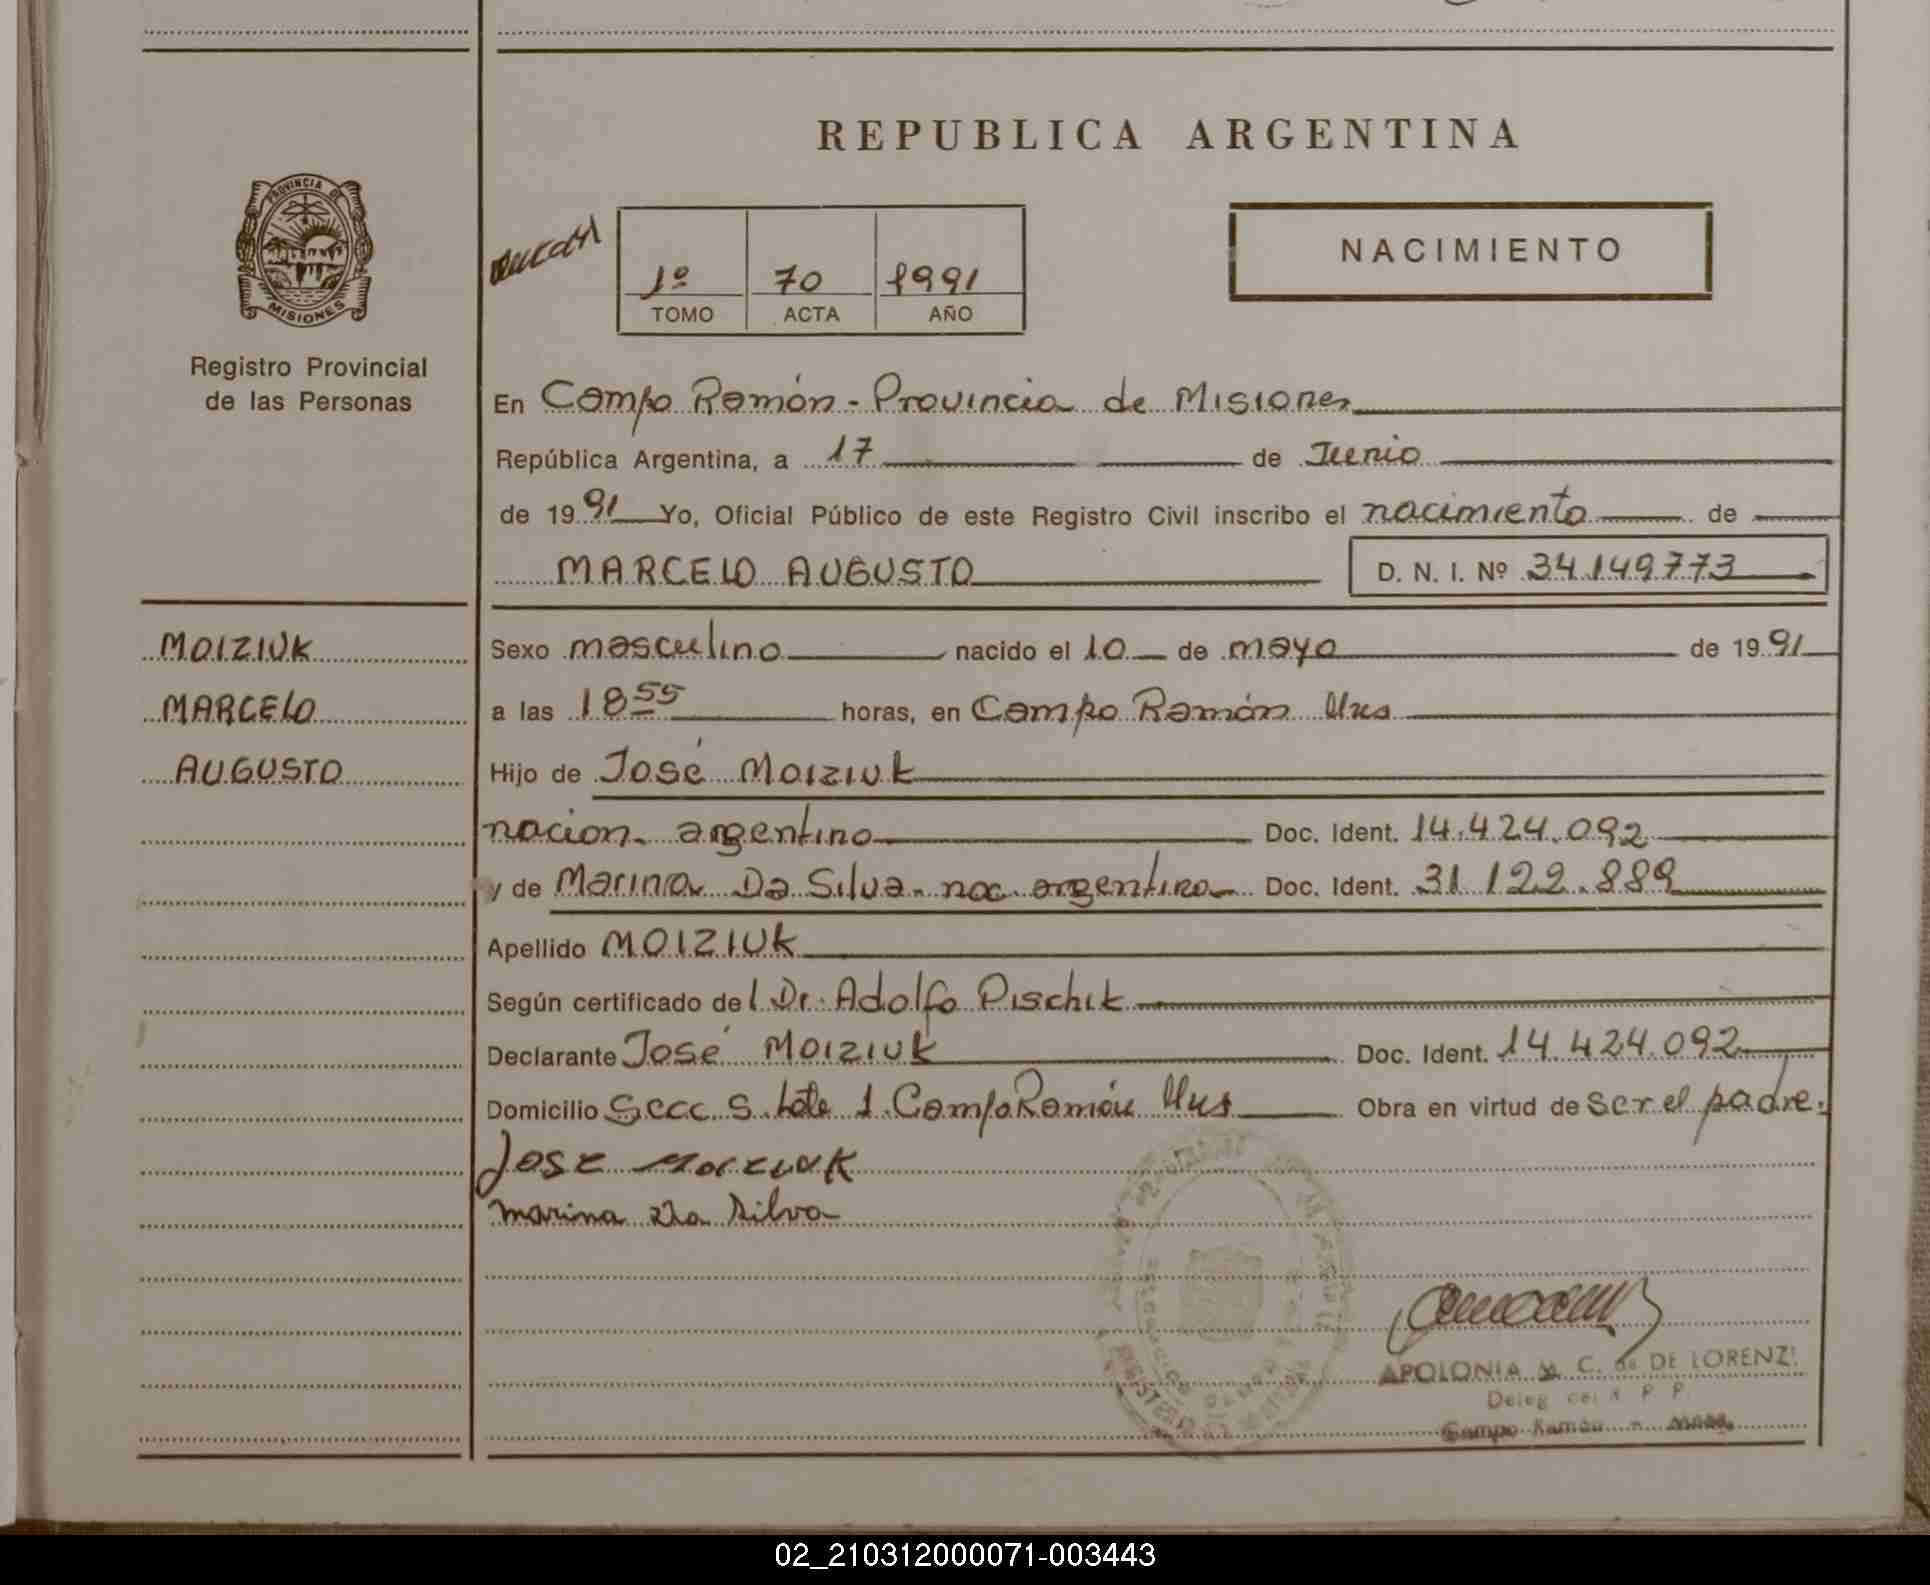 REPUBLICA ARGENTINA
PROVINCIA DE
MISIONES
Registro Provincial
de las Personas
1º 70 1991
TOMO ACTA AÑO
NACIMIENTO
En Campo Ramón - Provincia de Misiones
República Argentina, a 17 de Junio
de 1991 Yo, Oficial Público de este Registro Civil inscribo el nacimiento de
MARCELO AUGUSTO D. N. I. Nº 34.149.773
MOIZIUK
MARCELO
AUGUSTO
Sexo masculino nacido el 10 de mayo de 1991
a las 18 55 horas, en Campo Ramón Mns
Hijo de José Moiziuk
nacion. argentino Doc. Ident. 14.424.092
y de Marina Da Silva. nac. argentina Doc. Ident. 31.122.889
Apellido MOIZIUK
Según certificado del Dr. Adolfo Pischik
Declarante José Moiziuk Doc. Ident. 14.424.092
Domicilio Secc. S. Lote 1. Campo Ramón Mns Obra en virtud de ser el padre.
Jose Moiziuk
Marina Da Silva
APOLONIA M. C. de DE LORENZI
Deleg. del R. P. P.
Campo Ramón - Mnes.
02_210312000071-003443